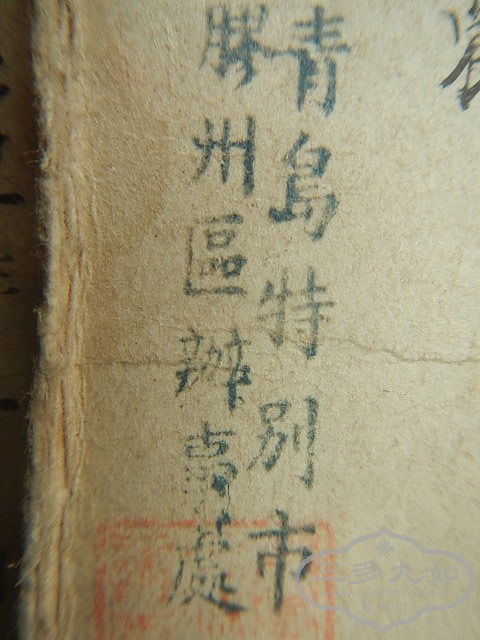 青島特別市
膠州區辦事處